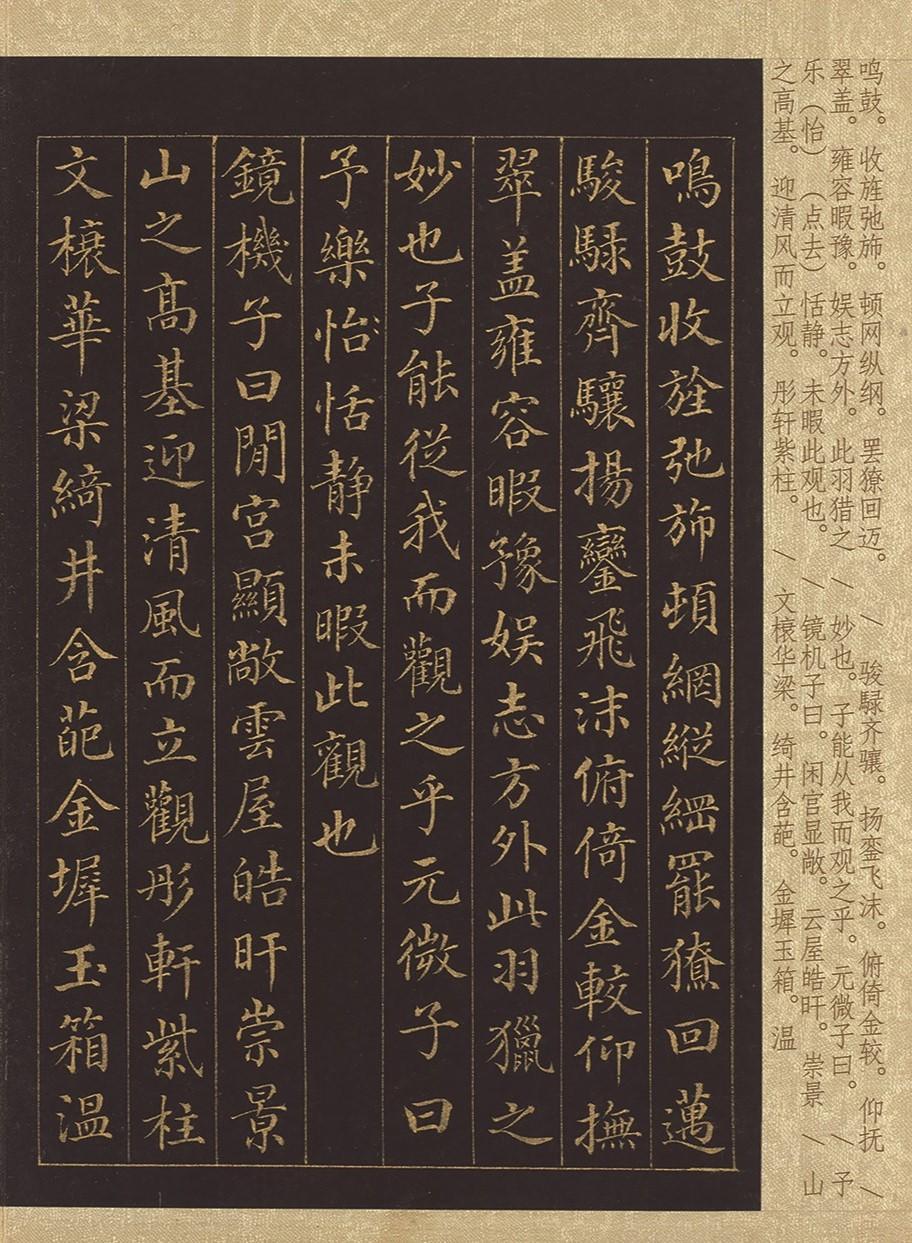 鸣鼓。收旌弛旆。顿网纵纲。罢獠回迈。/骏騄齐骧。扬銮飞沫。俯倚金较。仰抚/
翠盖。雍容暇豫。娱志方外。此羽猎之/妙也。子能从我而观之乎。元微子曰。/予
乐（怡）（点去）恬静。未暇此观也。/镜机子曰。闲宫显敞。云屋皓旰。崇景/山
之高基。迎清风而立观。彤轩紫柱。/文榱华梁。绮井含葩。金墀玉箱。温
鳴鼓收旌弛旆頓網縱綱罷獠回邁
駿騄齊驤揚鑾飛沫俯倚金較仰撫
翠盖雍容暇豫娱志方外此羽獵之
妙也子能從我而觀之乎元微子曰
予樂怡恬静未暇此觀也
鏡機子曰閒宫顯敞雲屋皓旰崇景
山之高基迎清風而立觀彤軒紫柱
文榱華梁綺井含葩金墀玉箱温